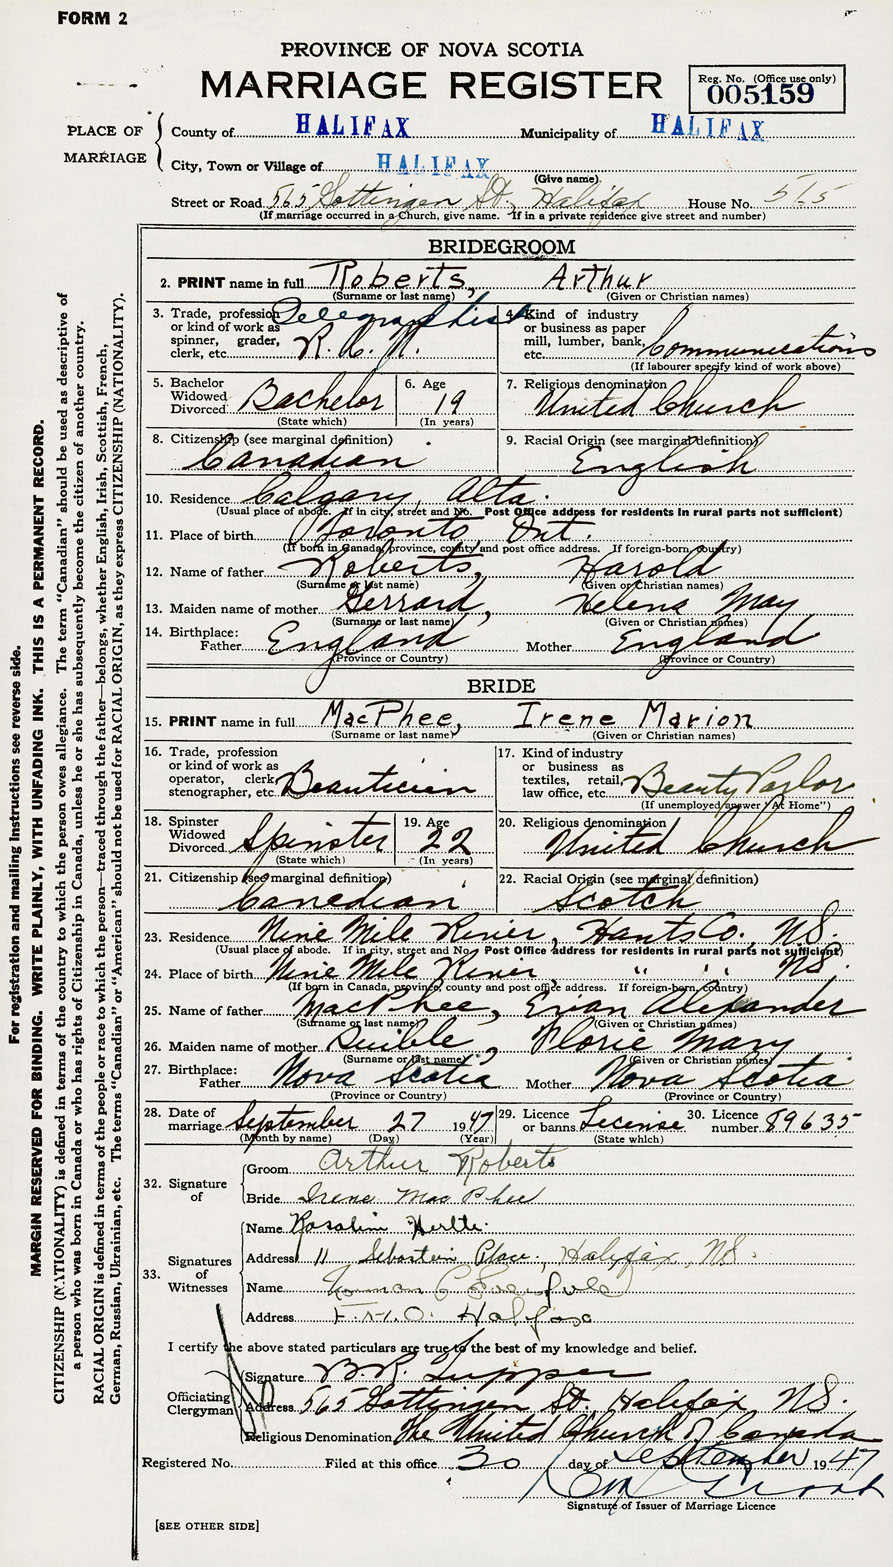 FORM 2
PROVINCE OF NOVA SCOTIA
MARRIAGE REGISTER
Reg. No. (Office use only)
005159
PLACE OF MARRIAGE
County of HALIFAX Municipality of HALIFAX
City, Town or Village of HALIFAX
(Give name)
Street or Road 565 Gottingen St., Halifax House No. 565
(If marriage occurred in a Church, give name. If in a private residence give street and number)
BRIDEGROOM
2. PRINT name in full Roberts, Arthur
(Surname or last name) (Given or Christian names)
3. Trade, profession or kind of work as spinner, grader, clerk, etc. Telegraphist R.C.N.
4. Kind of industry or business as paper mill, lumber, bank, etc. Communications
(If labourer specify kind of work above)
5. Bachelor Widowed Divorced Bachelor
(State which)
6. Age 19
(In years)
7. Religious denomination United Church
8. Citizenship (see marginal definition) Canadian
9. Racial Origin (see marginal definition) English
10. Residence Calgary, Alta.
(Usual place of abode. If in city, street and No. Post Office address for residents in rural parts not sufficient)
11. Place of birth Toronto Ont.
(If born in Canada, province, county and post office address. If foreign-born, country)
12. Name of father Roberts, Harold
(Surname or last name) (Given or Christian names)
13. Maiden name of mother Gerrard, Helena May
(Surname or last name) (Given or Christian names)
14. Birthplace: Father England Mother England
(Province or Country) (Province or Country)
BRIDE
15. PRINT name in full MacPhee, Irene Marion
(Surname or last name) (Given or Christian names)
16. Trade, profession or kind of work as operator, clerk, stenographer, etc. Beautician
17. Kind of industry or business as textiles, retail, law office, etc. Beauty Parlor
(If unemployed answer "At Home")
18. Spinster Widowed Divorced Spinster
(State which)
19. Age 22
(In years)
20. Religious denomination United Church
21. Citizenship (see marginal definition) Canadian
22. Racial Origin (see marginal definition) Scotch
23. Residence Nine Mile River, Hants Co., N.S.
(Usual place of abode. If in city, street and No. Post Office address for residents in rural parts not sufficient)
24. Place of birth Nine Mile River, " " N.S.
(If born in Canada, province, county and post office address. If foreign-born, country)
25. Name of father MacPhee, Alexander
(Surname or last name) (Given or Christian names)
26. Maiden name of mother Florie Mary
(Surname or last name) (Given or Christian names)
27. Birthplace: Father Nova Scotia Mother Nova Scotia
(Province or Country) (Province or Country)
28. Date of marriage September 27 1947
(Month by name) (Day) (Year)
29. Licence or banns License
(State which)
30. Licence number 89635
32. Signature of
Groom Arthur Roberts
Bride Irene MacPhee
33. Signatures of Witnesses
Name Rosalin
Address 11 Sebastian Place, Halifax, N.S.
Name Norman C.
Address Halifax
I certify the above stated particulars are true to the best of my knowledge and belief.
Officiating Clergyman
Signature B.R. Tupper
Address 565 Gottingen St. Halifax, N.S.
Religious Denomination The United Church of Canada
Registered No. Filed at this office 30 day of September 1947
Signature of Issuer of Marriage Licence
[SEE OTHER SIDE]
For registration and mailing instructions see reverse side.
MARGIN RESERVED FOR BINDING. WRITE PLAINLY, WITH UNFADING INK. THIS IS A PERMANENT RECORD.
CITIZENSHIP (NATIONALITY) is defined in terms of the country to which the person owes allegiance. The term "Canadian" should be used as descriptive of
a person who was born in Canada or who has rights of Citizenship in Canada, unless he or she has subsequently become the citizen of another country.
RACIAL ORIGIN is defined in terms of the people or race to which the person—traced through the father—belongs, whether English, Irish, Scottish, French,
German, Russian, Ukrainian, etc. The terms "Canadian" or "American" should not be used for RACIAL ORIGIN, as they express CITIZENSHIP (NATIONALITY).